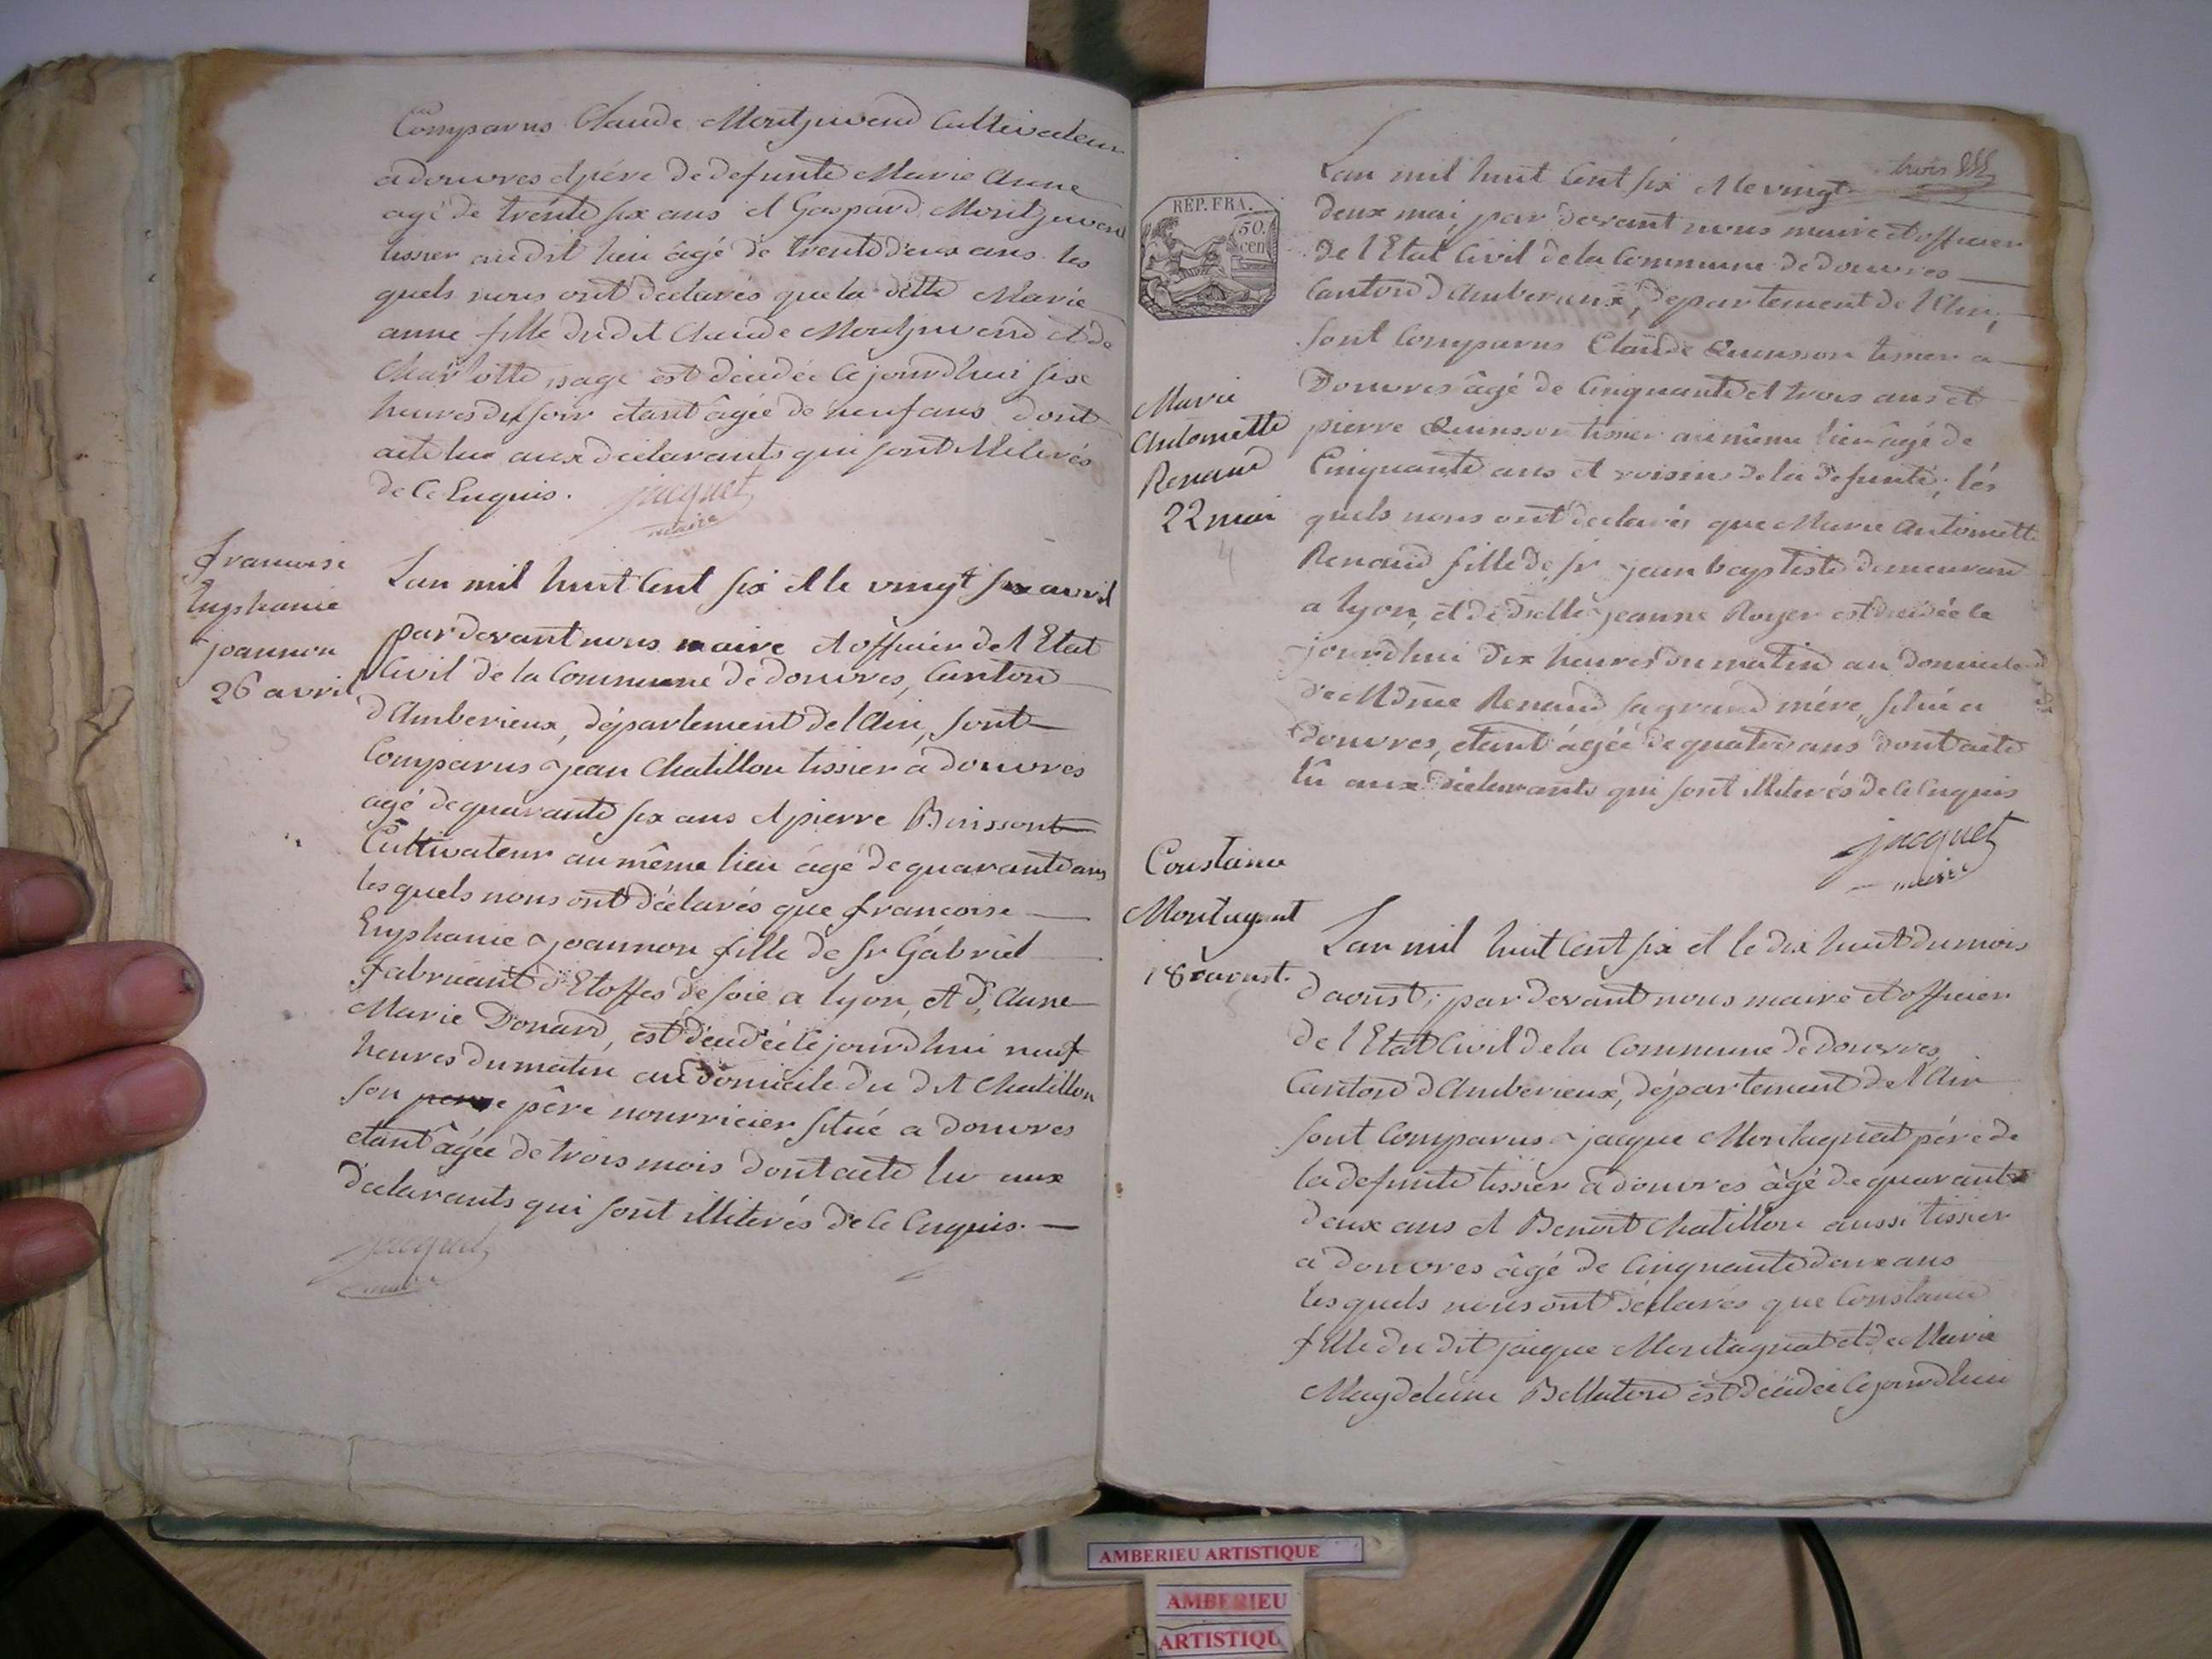 Comparus Claude Montjuvend Cultivateur
a douvres et père de defunte Marie Anne
agé de trente six ans et Gaspard Montjuvend
tissier audit lieu âgé de trente deux ans les
quels nous ont declarés que la ditte Marie
anne fille dudit Claude Montjuvend et de
Charlotte page est décédée ce jourd'hui six
heures du soir etant âgée de neuf ans dont
acte lu aux déclarants qui sont illiterés
de ce Enquis. jacquet
maire
francoise
Euphanie
joannon
26 avril
Lan mil huit Cent six et le vingt six avril
par devant nous maire et officier de l'Etat
Civil de la Commune de douvres, Canton
d'Amberieux, département de l'Ain, sont
Comparus jean Chatillon tissier a douvres
agé de quarante six ans et pierre Buisson
Cultivateur au même lieu âgé de quarante ans
les quels nous ont déclarés que francoise
Euphanie joannon fille de sr Gabriel
fabricant d'Etoffes de soie a lyon, et de Anne
Marie Donard, est décédée ce jourd'hui neuf
heures du matin au domicile du dit Chatillon
son père nourricier situé a douvres
etant âgée de trois mois dont acte lu aux
déclarants qui sont illiterés de ce Enquis.
jacquet
maire
trois
REP. FRA.
50.
cen
Lan mil huit Cent six et le vingt
deux mai, par devant nous maire et officier
de l'Etat Civil de la Commune de douvres
Canton d'Amberieux, département de l'Ain,
sont Comparus Claude Quinson tissier a
Douvres âgé de Cinquante et trois ans et
pierre Quinson tissier au même lieu âgé de
Cinquante ans et voisin de la defunte, les
quels nous ont declarés que Marie Antoinette
Renaud fille de sr jean baptiste demeurant
a lyon, et de dlle jeanne Royer est décédée ce
jourd'hui dix heures du matin au domicile
de Mdme Renaud sa grand mére, situé a
Douvres, etant âgée de quatre ans dont acte
lû aux déclarants qui sont illiterés de ce Enquis
jacquet
maire
Marie
Antoinette
Renaud
22 mai
4
Constance
Montagnat
18 aoust.
5
Lan mil huit Cent six et le dix huit du mois
d'aoust, par devant nous maire et officier
de l'Etat Civil de la Commune de Douvres,
Canton d'Amberieux, département de l'Ain
sont Comparus jacque Montagnat père de
la defunte tissier a douvres âgé de quarante
deux ans et Benoit Chatillon aussi tissier
a Douvres âgé de Cinquante deux ans
les quels nous ont déclarés que Constance
fille du dit jacque Montagnat et de Marie
Magdeleine Bellaton est décédée ce jourd'hui
AMBERIEU ARTISTIQUE
AMBERIEU
ARTISTIQU